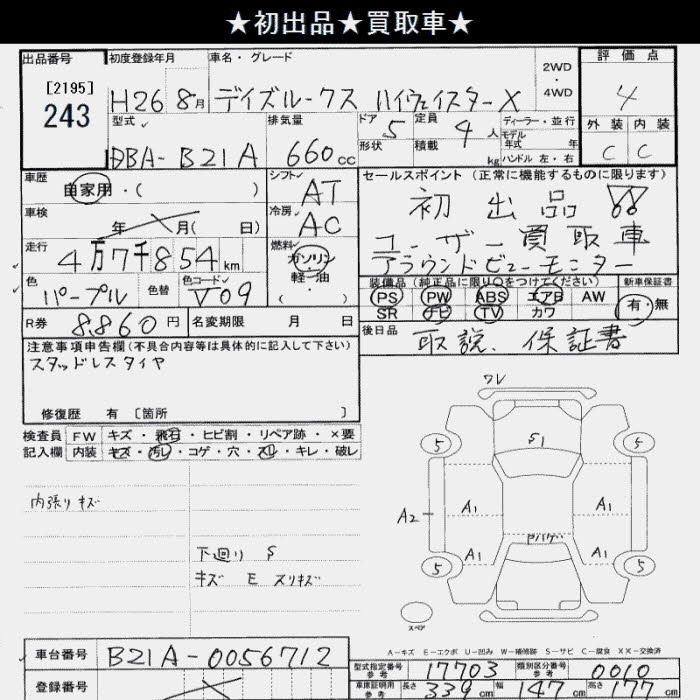 ★初出品★買取車★
出品番号 初度登録年月 車名・グレード 2WD・4WD 評価点
[2195]
243
H26 8月 デイズルークス ハイウェイスターX 4
型式 排気量 ドア 5 定員 4人 ディーラー・並行 外装 内装
DBA-B21A 660cc 形状 積載 kg モデル年式 年 C C
ハンドル 左・右
車歴 自家用・( ) シフト AT セールスポイント (正常に機能するものに限ります)
車検 年 月( 日) 冷房 AC 初出品
走行 4万7千854km 燃料 ガソリン 軽・油 ( ・ ) ユーザー買取車
アラウンドビューモニター
色 パープル 色替 色コード V09
装備品(純正品に限り○をつけてください) 新車保証書
PS PW ABS エアB AW 有・無
SR ナビ TV カワ
R券 8,860円 名変期限 月 日
後日品 取説、保証書
注意事項申告欄(不具合内容等は具体的に記入して下さい)
スタッドレスタイヤ
修復歴 有 [箇所 ]
検査員 FW キズ・飛石・ヒビ割・リペア跡・×要
記入欄 内装 キズ・汚レ・コゲ・穴・スレ・キレ・破レ
内張りキズ
下廻り S
キズ E スリキズ
ワレ
S1
5 5
A1 A1
A2
A1 A1
5 5
スペア
A-キズ E-エクボ U-凹み W-補修跡 S-サビ C-腐食 XX-交換済
車台番号 B21A-0056712
登録番号
型式指定番号 参考 17703 類別区分番号 参考 0010
車庫証明用 参考 長さ 339cm 幅 147cm 高さ 177cm